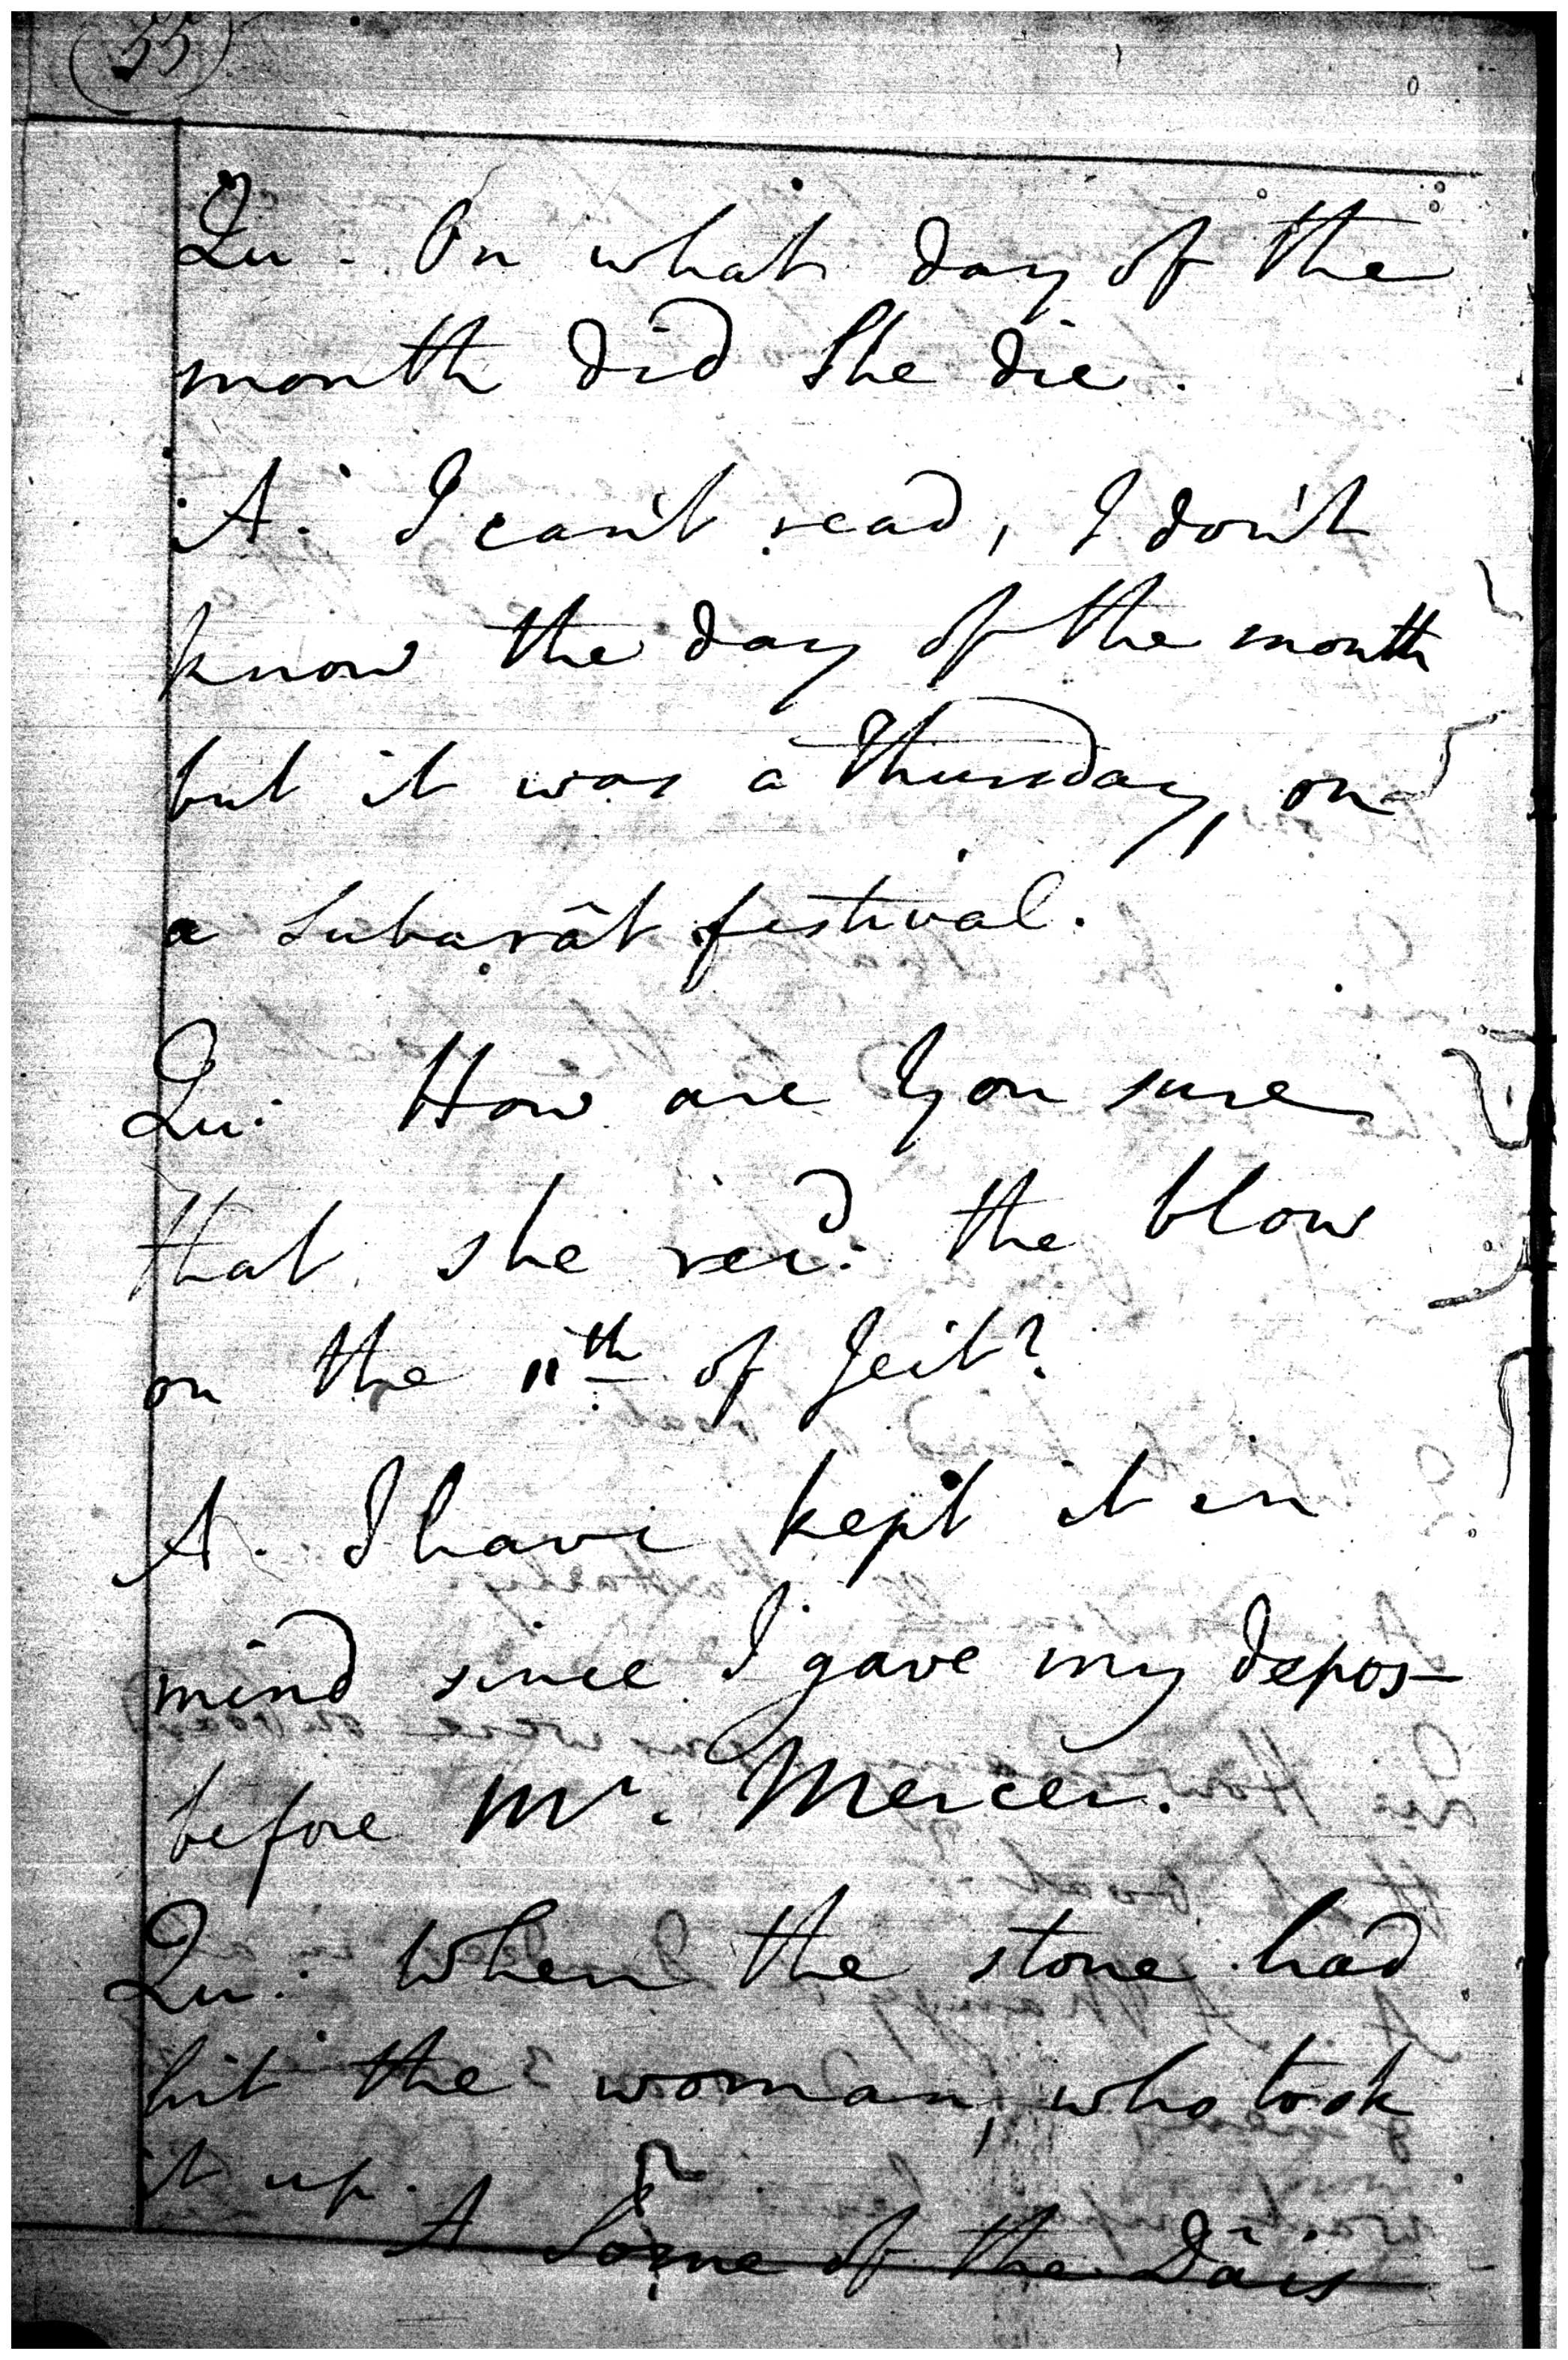 55
Qu. On what day of the
month did She die.
A. I can't read, I don't
know the day of the month
but it was a Thursday, on
a Subarât festival.
Qu: How are You sure
that she recd. the blow
on the 11th of Jeit?
A. I have kept it in
mind since I gave my depos-
before Mr. Mercer.
Qu: When the stone had
hit the woman, who took
it up.
A Some of the Dāis